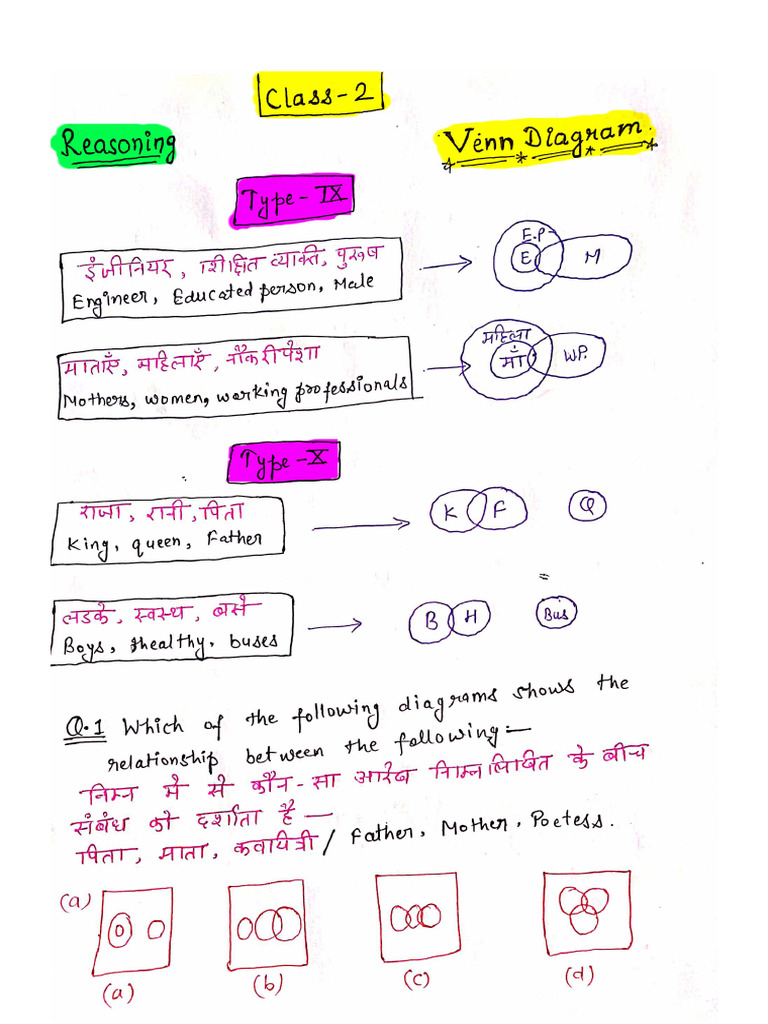 Class-2
Reasoning
Venn Diagram.
Type-IX
इंजीनियर, शिक्षित व्यक्ति, पुरुष
Engineer, Educated person, Male
E.P-
E
M
माताएँ, महिलाएँ, नौकरीपेशा
Mothers, women, working professionals
महिला
माँ
WP.
Type-X
राजा, रानी, पिता
King, queen, Father
K
F
Q
लडके, स्वस्थ, बसें
Boys, Healthy, buses
B
H
Bus
Q.1 Which of the following diagrams shows the
relationship between the following:-
निम्न में से कौन-सा आरेख निम्नलिखित के बीच
संबंध को दर्शाता है —
पिता, माता, कवायित्री / Father, Mother, Poetess.
(a)
(a)
(b)
(c)
(d)